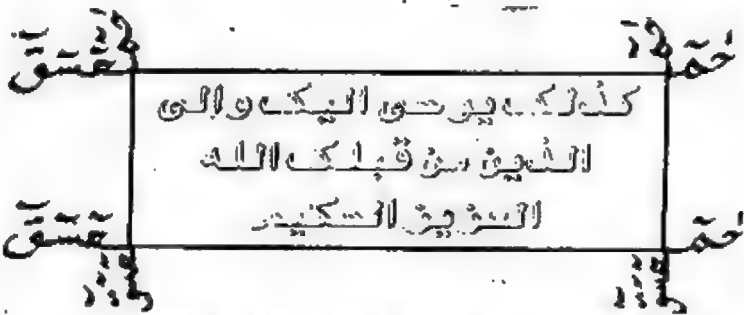 حمٓ عٓسٓقٓ
كذلك يوحى اليك والى
الذين من قبلك الله
العزيز الحكيم
حمٓ عٓسٓقٓ